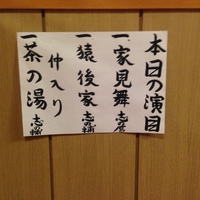 本日の演目
一 家見舞 志の彦
一 猿後家 志の輔
仲入り
一 茶の湯 志の輔